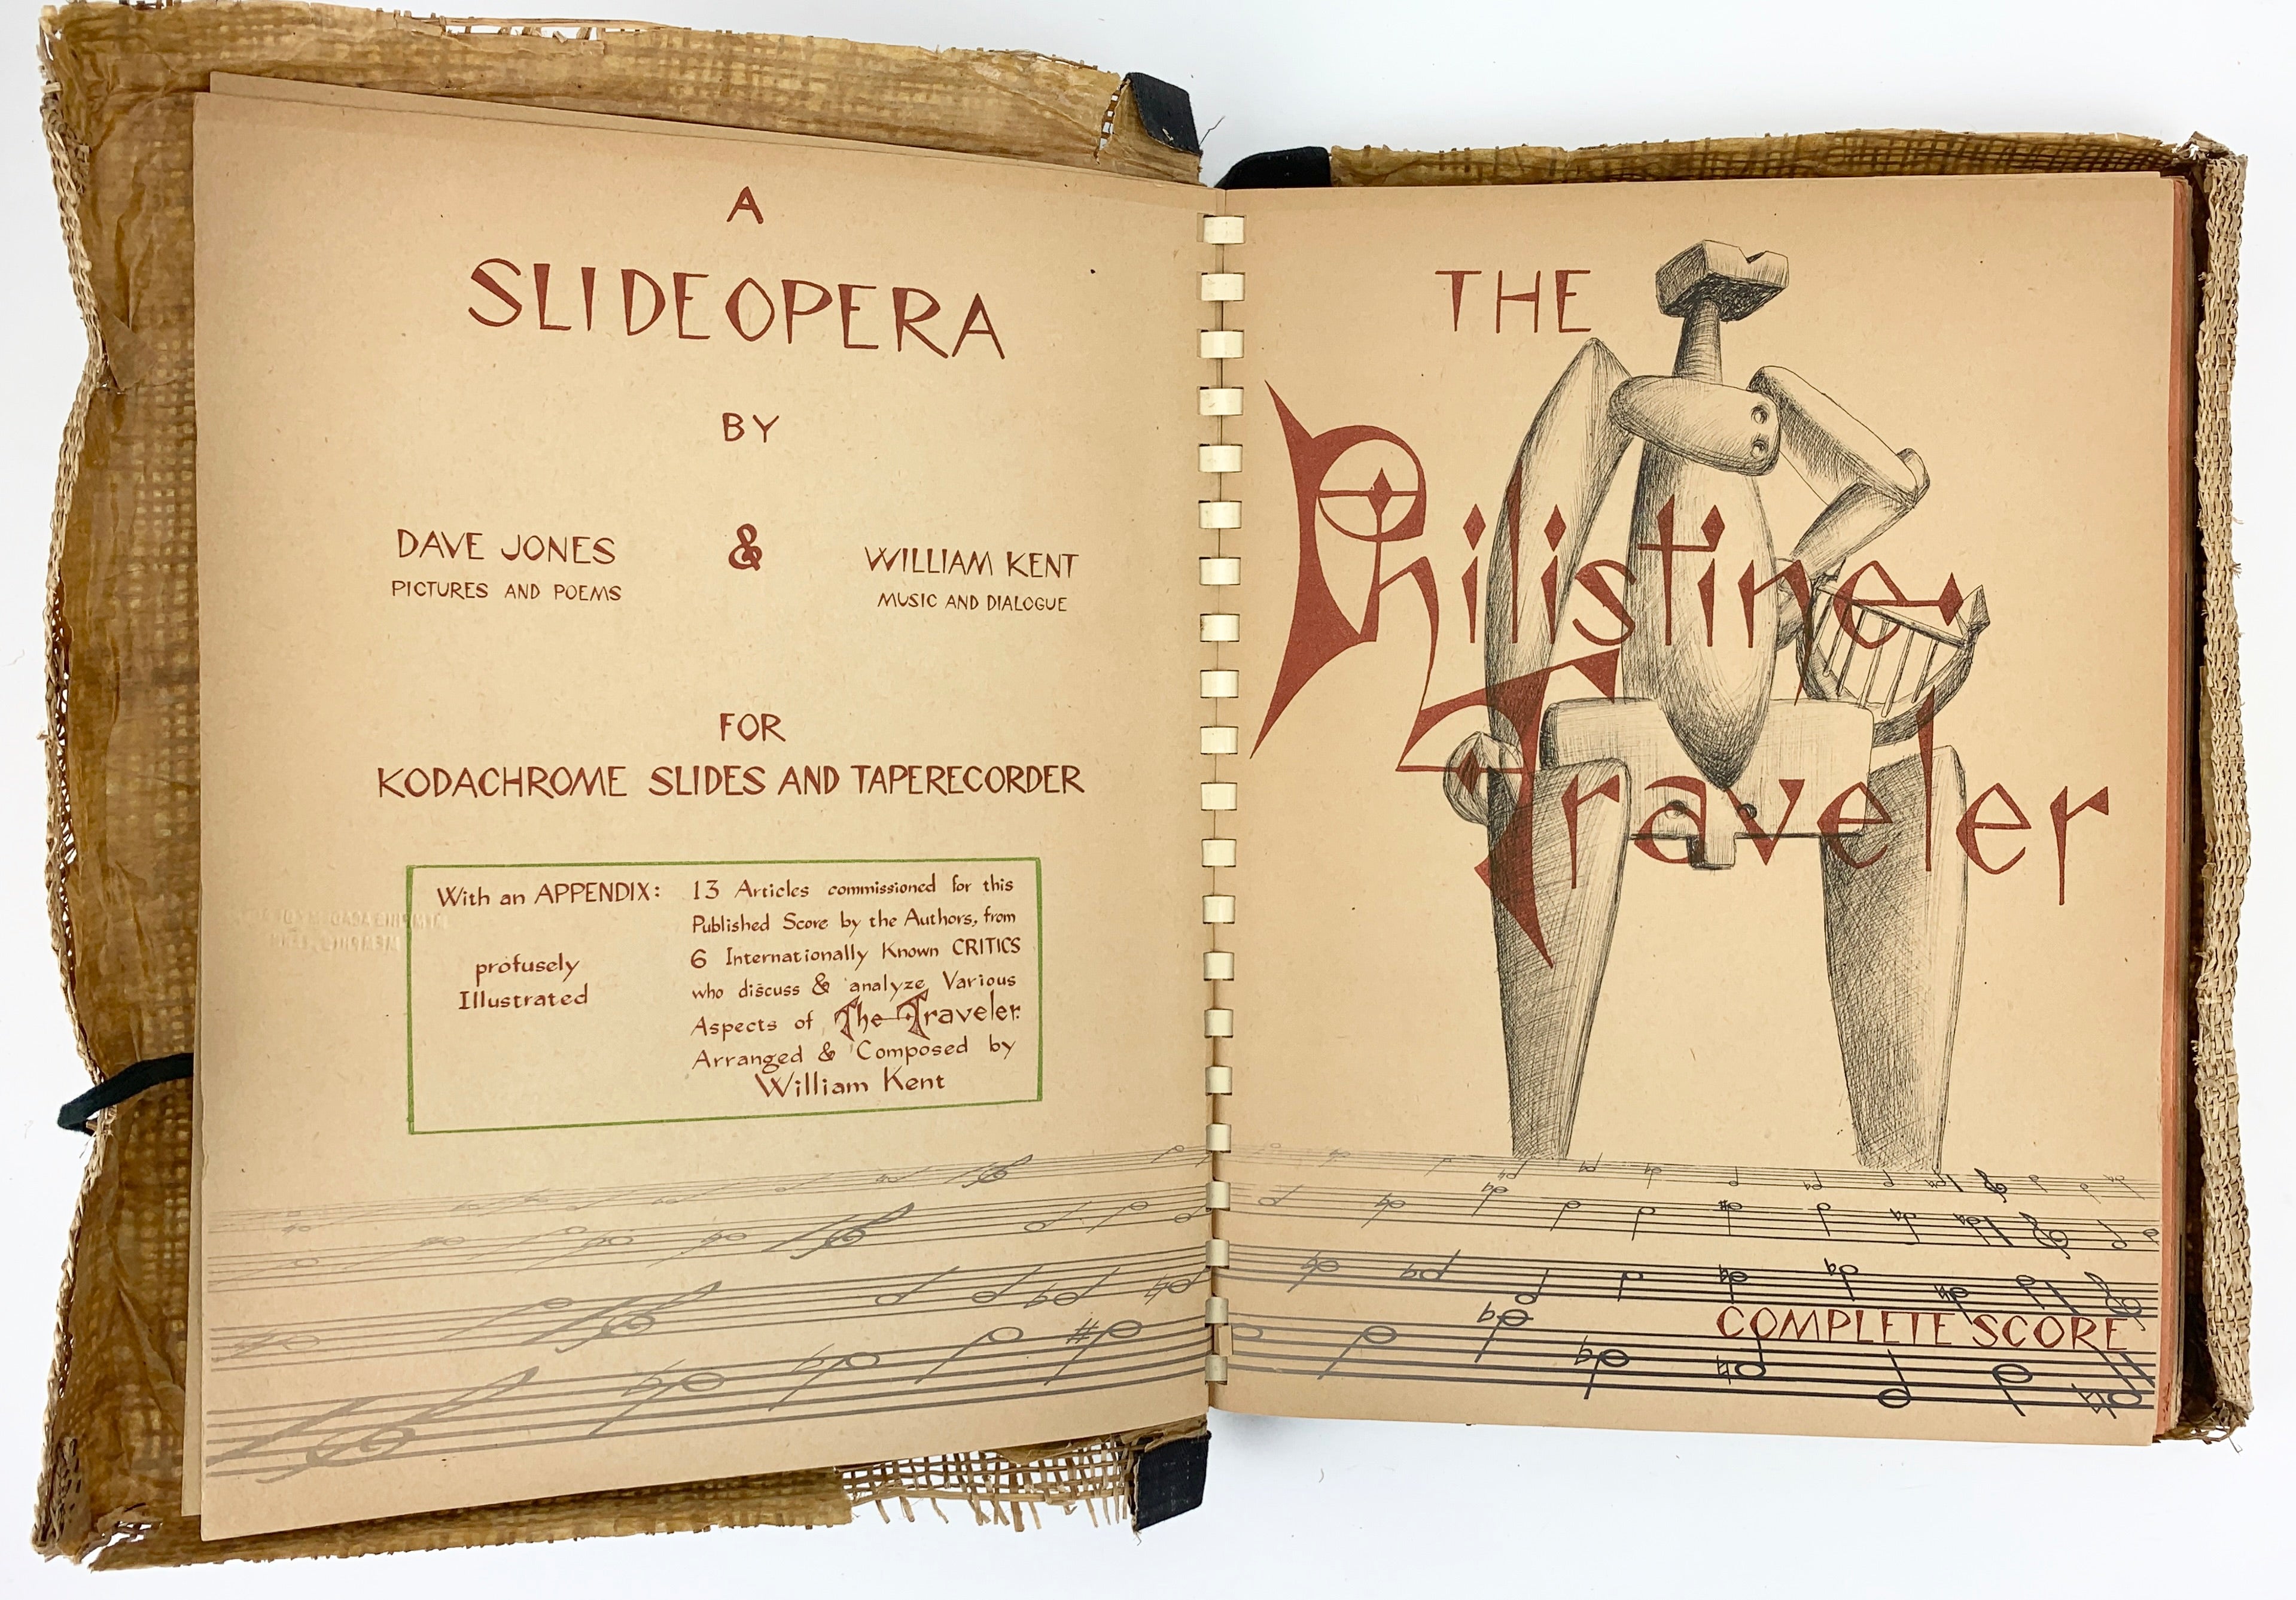 A
SLIDEOPERA
BY
DAVE JONES & WILLIAM KENT
PICTURES AND POEMS MUSIC AND DIALOGUE
FOR
KODACHROME SLIDES AND TAPERECORDER
With an APPENDIX:
profusely
Illustrated
13 Articles commissioned for this
Published Score by the Authors, from
6 Internationally Known CRITICS
who discuss & analyze Various
Aspects of The Traveler.
Arranged & Composed by
William Kent
THE
Philistine
Traveler
COMPLETE SCORE